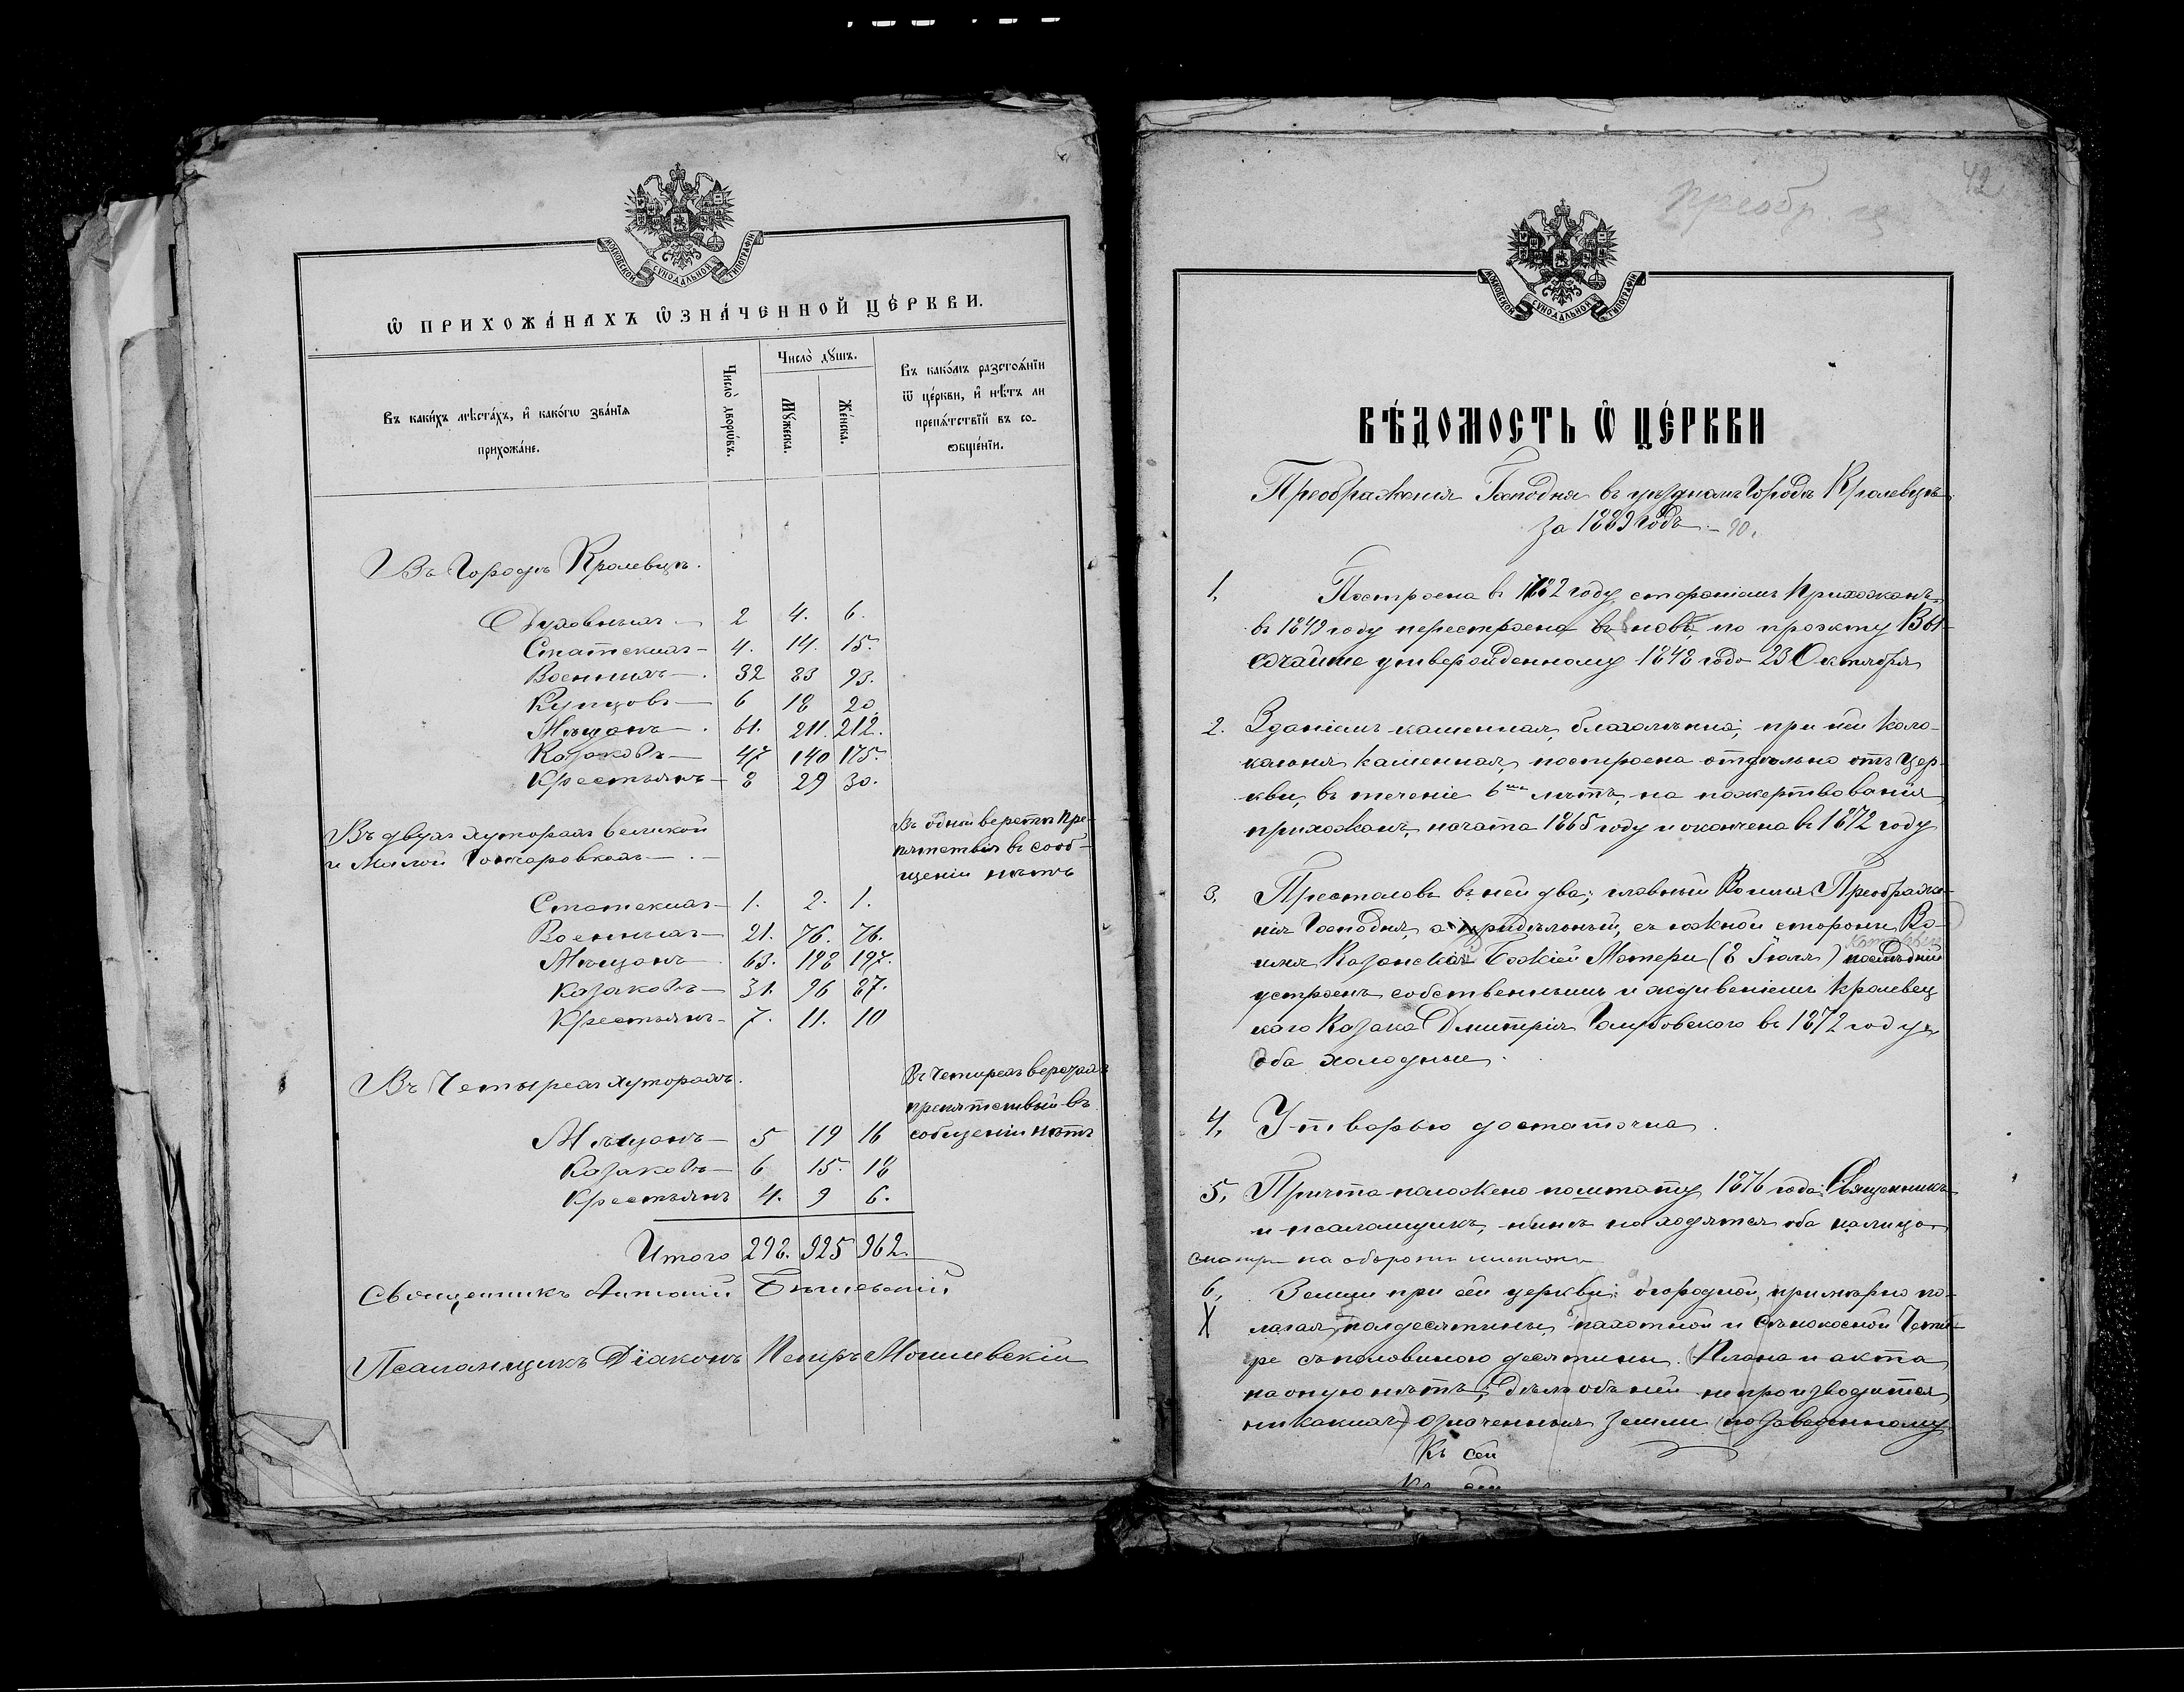 МОСКОВСКОЙ СѴНОДАЛЬНОЙ ТИПОГРАФІИ
Ѽ ПРИХОЖА́НАХЪ Ѽ҆ЗНА́ЧЕННОЙ ЦЕ́РКВИ.
Въ каки́хъ мѣста́хъ, и҆ како́гѡ зва́нїѧ прихожа́не.
Число̀ дворѡ́въ.
Число̀ дꙋшъ.
Мꙋ́жеска.
Же́нска.
Въ како́мъ разстоѧ́нїи
ѿ це́ркви, и҆ нѣ́тъ ли
препѧ́тствїй въ со-
ѻбще́нїи.
Въ Городѣ Кролевцѣ.
Духовныхъ — 2 4. 6.
Статскихъ — 4. 14. 15.
Военныхъ — 32 83 93.
Купцовъ — 6 18 20.
Мѣщанъ — 61. 211. 212.
Казаковъ — 47 140 175.
Крестьянъ — 8 29 30.
Въ двухъ хуторахъ великой
и Малой Гончаровкахъ —
Въ одной верстѣ пре-
пятствія въ сооб-
щеніи нѣтъ
Статскихъ — 1. 2. 1.
Военныхъ — 21. 76. 76.
Мѣщанъ — 63. 198 197.
Казаковъ — 31. 96 87.
Крестьянъ — 7. 11. 10
Въ Четырехъ хуторахъ.
Въ Четырехъ верстахъ
препятствій въ
сообщеніи нѣтъ
Мѣщанъ — 5 19 16
Казаковъ — 6 15. 18
Крестьянъ 4. 9 6.
Итого 298. 925 962.
Священникъ Антоній
Псаломщикъ Діаконъ Петръ Могилевскій
42
Преобр
МОСКОВСКОЙ СѴНОДАЛЬНОЙ ТИПОГРАФІИ
ВѢ́ДОМОСТЬ Ѽ ЦЕ́РКВИ
Преображенія Господня въ уѣздномъ Городѣ Кролевцѣ
за 1889 годъ – 90.
1. Построена въ 1782 году стараніемъ Прихожанъ,
въ 1849 году перестроена въ новѣ, по проэкту Вы-
сочайше утвержденному 1848 года 23 Октября
2. Зданіемъ каменная, благолѣпна; при ней коло-
кольня каменная, построена отдѣльно отъ цер-
кви, въ теченіе 6ти лѣтъ, на пожертвованія
прихожанъ, начата 1865 году и окончена въ 1872 году
3. Престоловъ въ ней два; главный Во имя Преображе-
нія Господня, а придѣльный, съ южной стороны Во
имя Казанскія Божіей Матери (8 Іюля) послѣдній
устроенъ собственнымъ иждивеніемъ Кролевец
каго Казака Дмитрія Голубовскаго въ 1872 году,
оба холодные.
4. Утварью достаточна.
5. Причта положено по штату 1876 года: Священникъ
и псаломщикъ, нынѣ находятся оба налицо
смотри на оборотѣ
6. Земли при сей церкви: огородной, примѣрно по-
X лагая, полдесятины, пахотной и сѣнокосной Четы-
ре съ половиною десятины. (Плана и акта
на оную нѣтъ; Дѣлъ объ ней не производится
никакихъ) означенныя земли по заведенному
Къ сей